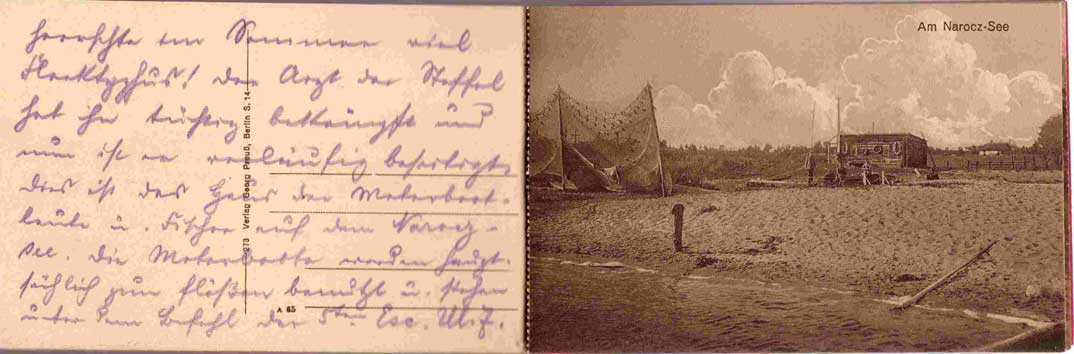 herrschte im Sommer viel
Flecktyphus! Der Arzt der Staffel
hat ihn tüchtig bekämpft und
nun ist er vorläufig beseitigt.
Dies ist das Haus der Motorboot-
leute u. Fischer auf dem Narocz-
see. Die Motorboote werden haupt-
sächlich zum flößen benutzt u. stehen
unter dem Befehl der 5ten Esc. Ul. 7.
273 Verlag Georg Preuß, Berlin S. 14
A 65
Am Narocz-See